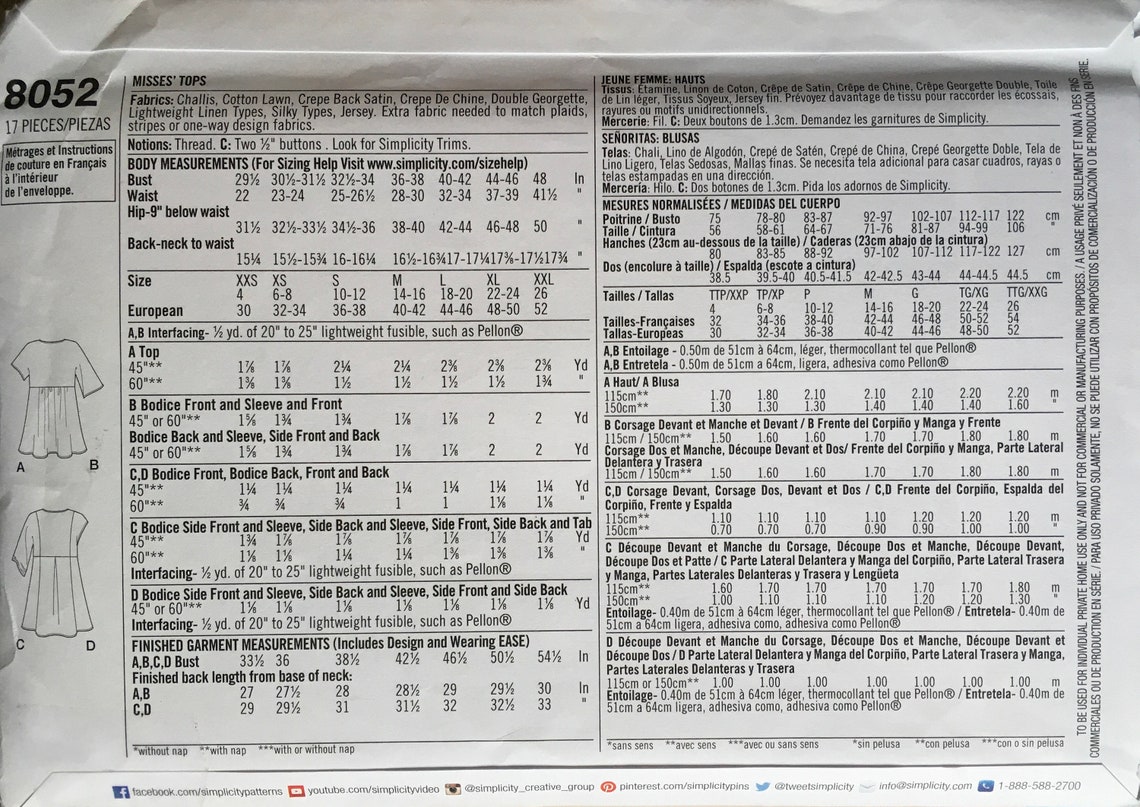 8052
17 PIECES/PIEZAS
Métrages et Instructions
de couture en Français
à l'intérieur
de l'enveloppe.
A
B
C
D
MISSES' TOPS
Fabrics: Challis, Cotton Lawn, Crepe Back Satin, Crepe De Chine, Double Georgette,
Lightweight Linen Types, Silky Types, Jersey. Extra fabric needed to match plaids,
stripes or one-way design fabrics.
Notions: Thread. C: Two ½" buttons . Look for Simplicity Trims.
BODY MEASUREMENTS (For Sizing Help Visit www.simplicity.com/sizehelp)
Bust 29½ 30½-31½ 32½-34 36-38 40-42 44-46 48 In
Waist 22 23-24 25-26½ 28-30 32-34 37-39 41½ "
Hip-9" below waist
31½ 32½-33½ 34½-36 38-40 42-44 46-48 50 "
Back-neck to waist
15¼ 15½-15¾ 16-16¼ 16½-16¾ 17-17¼ 17⅜-17½ 17¾ "
Size XXS XS S M L XL XXL
4 6-8 10-12 14-16 18-20 22-24 26
European 30 32-34 36-38 40-42 44-46 48-50 52
A,B Interfacing- ½ yd. of 20" to 25" lightweight fusible, such as Pellon®
A Top
45"** 1⅞ 1⅞ 2¼ 2¼ 2⅜ 2⅜ 2⅜ Yd
60"** 1⅜ 1⅜ 1½ 1½ 1½ 1½ 1¾ "
B Bodice Front and Sleeve and Front
45" or 60"** 1⅝ 1¾ 1¾ 1⅞ 1⅞ 2 2 Yd
Bodice Back and Sleeve, Side Front and Back
45" or 60"** 1⅝ 1¾ 1¾ 1⅞ 1⅞ 2 2 Yd
C,D Bodice Front, Bodice Back, Front and Back
45"** 1¼ 1¼ 1¼ 1¼ 1¼ 1¼ 1¼ Yd
60"** ¾ ¾ ¾ 1 1 1⅛ 1⅛ "
C Bodice Side Front and Sleeve, Side Back and Sleeve, Side Front, Side Back and Tab
45"** 1¾ 1⅞ 1⅞ 1⅞ 1⅞ 1⅞ 1⅞ Yd
60"** 1⅛ 1⅛ 1¼ 1¼ 1⅜ 1⅜ 1⅜ "
Interfacing- ½ yd. of 20" to 25" lightweight fusible, such as Pellon®
D Bodice Side Front and Sleeve, Side Back and Sleeve, Side Front and Side Back
45" or 60"** 1⅛ 1⅛ 1⅛ 1⅛ 1⅛ 1⅛ 1⅛ Yd
Interfacing- ½ yd. of 20" to 25" lightweight fusible, such as Pellon®
FINISHED GARMENT MEASUREMENTS (Includes Design and Wearing EASE)
A,B,C,D Bust 33½ 36 38½ 42½ 46½ 50½ 54½ In
Finished back length from base of neck:
A,B 27 27½ 28 28½ 29 29½ 30 In
C,D 29 29½ 31 31½ 32 32½ 33 "
*without nap **with nap ***with or without nap
JEUNE FEMME: HAUTS
Tissus: Étamine, Linon de Coton, Crêpe de Satin, Crêpe de Chine, Crêpe Georgette Double, Toile
de Lin léger, Tissus Soyeux, Jersey fin. Prévoyez davantage de tissu pour raccorder les écossais,
rayures ou motifs unidirectionnels.
Mercerie: Fil. C: Deux boutons de 1.3cm. Demandez les garnitures de Simplicity.
SEÑORITAS: BLUSAS
Telas: Chalí, Lino de Algodón, Crepé de Satén, Crepé de China, Crepé Georgette Doble, Tela de
Lino Ligero, Telas Sedosas, Mallas finas. Se necesita tela adicional para casar cuadros, rayas o
telas estampadas en una dirección.
Mercería: Hilo. C: Dos botones de 1.3cm. Pida los adornos de Simplicity.
MESURES NORMALISÉES / MEDIDAS DEL CUERPO
Poitrine / Busto 75 78-80 83-87 92-97 102-107 112-117 122 cm
Taille / Cintura 56 58-61 64-67 71-76 81-87 94-99 106 "
Hanches (23cm au-dessous de la taille) / Caderas (23cm abajo de la cintura)
80 83-85 88-92 97-102 107-112 117-122 127 cm
Dos (encolure à taille) / Espalda (escote a cintura)
38.5 39.5-40 40.5-41.5 42-42.5 43-44 44-44.5 44.5 cm
Tailles / Tallas TTP/XXP TP/XP P M G TG/XG TTG/XXG
4 6-8 10-12 14-16 18-20 22-24 26
Tailles-Françaises 32 34-36 38-40 42-44 46-48 50-52 54
Tallas-Européas 30 32-34 36-38 40-42 44-46 48-50 52
A,B Entoilage - 0.50m de 51cm à 64cm, léger, thermocollant tel que Pellon®
A,B Entretela - 0.50m de 51cm a 64cm, ligera, adhesiva como Pellon®
A Haut/ A Blusa
115cm** 1.70 1.80 2.10 2.10 2.20 2.20 2.20 m
150cm** 1.30 1.30 1.40 1.40 1.40 1.40 1.60 "
B Corsage Devant et Manche et Devant / B Frente del Corpiño y Manga y Frente
115cm / 150cm** 1.50 1.60 1.60 1.70 1.70 1.80 1.80 m
Corsage Dos et Manche, Découpe Devant et Dos/ Frente del Corpiño y Manga, Parte Lateral
Delantera y Trasera
115cm / 150cm** 1.50 1.60 1.60 1.70 1.70 1.80 1.80 m
C,D Corsage Devant, Corsage Dos, Devant et Dos / C,D Frente del Corpiño, Espalda del
Corpiño, Frente y Espalda
115cm** 1.10 1.10 1.10 1.10 1.20 1.20 1.20 m
150cm** 0.70 0.70 0.70 0.90 0.90 1.00 1.00 "
C Découpe Devant et Manche du Corsage, Découpe Dos et Manche, Découpe Devant,
Découpe Dos et Patte / C Parte Lateral Delantera y Manga del Corpiño, Parte Lateral Trasera
y Manga, Partes Laterales Delanteras y Trasera y Lengüeta
115cm** 1.60 1.70 1.70 1.70 1.70 1.70 1.80 m
150cm** 1.00 1.10 1.10 1.10 1.20 1.20 1.30 "
Entoilage- 0.40m de 51cm à 64cm léger, thermocollant tel que Pellon® / Entretela- 0.40m de
51cm a 64cm ligera, adhesiva como, adhesiva como Pellon®
D Découpe Devant et Manche du Corsage, Découpe Dos et Manche, Découpe Devant et
Découpe Dos / D Parte Lateral Delantera y Manga del Corpiño, Parte Lateral Trasera y Manga,
Partes Laterales Delanteras y Trasera
115cm or 150cm** 1.00 1.00 1.00 1.00 1.00 1.00 1.00 m
Entoilage- 0.40m de 51cm à 64cm léger, thermocollant tel que Pellon® / Entretela- 0.40m de
51cm a 64cm ligera, adhesiva como, adhesiva como Pellon®
*sans sens **avec sens ***avec ou sans sens *sin pelusa **con pelusa ***con o sin pelusa
TO BE USED FOR INDIVIDUAL PRIVATE HOME USE ONLY AND NOT FOR COMMERCIAL OR MANUFACTURING PURPOSES. / A USAGE PRIVÉ SEULEMENT ET NON À DES FINS
COMMERCIALES OU DE PRODUCTION EN SÉRIE. / PARA USO PRIVADO SOLAMENTE, NO SE PUEDE UTILIZAR CON PROPÓSITOS DE COMERCIALIZACIÓN O DE PRODUCCIÓN EN SERIE.
facebook.com/simplicitypatterns youtube.com/simplicityvideo @simplicity_creative_group pinterest.com/simplicitypins @tweetsimplicity info@simplicity.com 1-888-588-2700